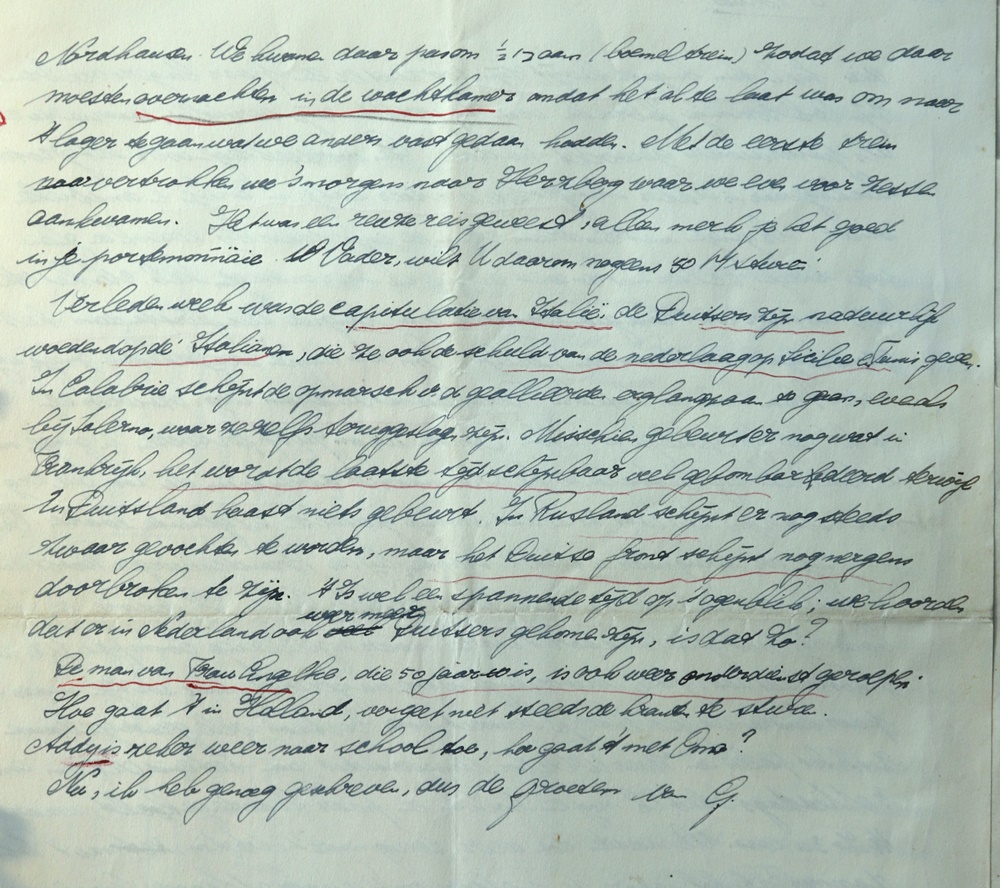 Nordhausen. We kwamen daar pas om ½ 1 aan (boemeltrein) zodat we daar
moesten overnachten in de wachtkamer omdat het al te laat was om naar
't lager te gaan wat we anders vast gedaan hadden. Met de eerste trein
vertrokken we 's morgens naar Herzberg waar we even voor zessen
aankwamen. Het was een reuze reis geweest, alleen merk je het goed
in je portemonnaie. Vader, wilt U daarom nog eens 50 M sturen
Verleden week was de capitulatie van Italië, de Duitsers zijn natuurlijk
woedend op de Italianen, die ze ook de schuld van de nederlaag op Sicilie & Tunis geven.
In Calabrie schijnt de opmarsch v. d. geallieerden erg langzaam te gaan, evenals
bij Salerno, waar ze zelfs teruggeslagen zijn. Misschien gebeurt er nog wat in
Frankrijk, het wordt de laatste tijd schijnbaar veel gebombardeerd terwijl
in Duitsland haast niets gebeurt. In Rusland schijnt er nog steeds
zwaar gevochten te worden, maar het Duitse front schijnt nog nergens
doorbroken te zijn. 't Is wel een spannende tijd op 't ogenblik; we hoorden
weer meer
dat er in Nederland ook Duitsers gekomen zijn, is dat zo?
De man van Frau Engelke, die 50 jaar is, is ook weer onder dienst geroepen.
Hoe gaat 't in Holland, vergeet niet steeds de kranten te sturen.
Addy is zeker weer naar school toe, hoe gaat 't met Oma?
Nu, ik heb genoeg geschreven, dus de groeten van G.